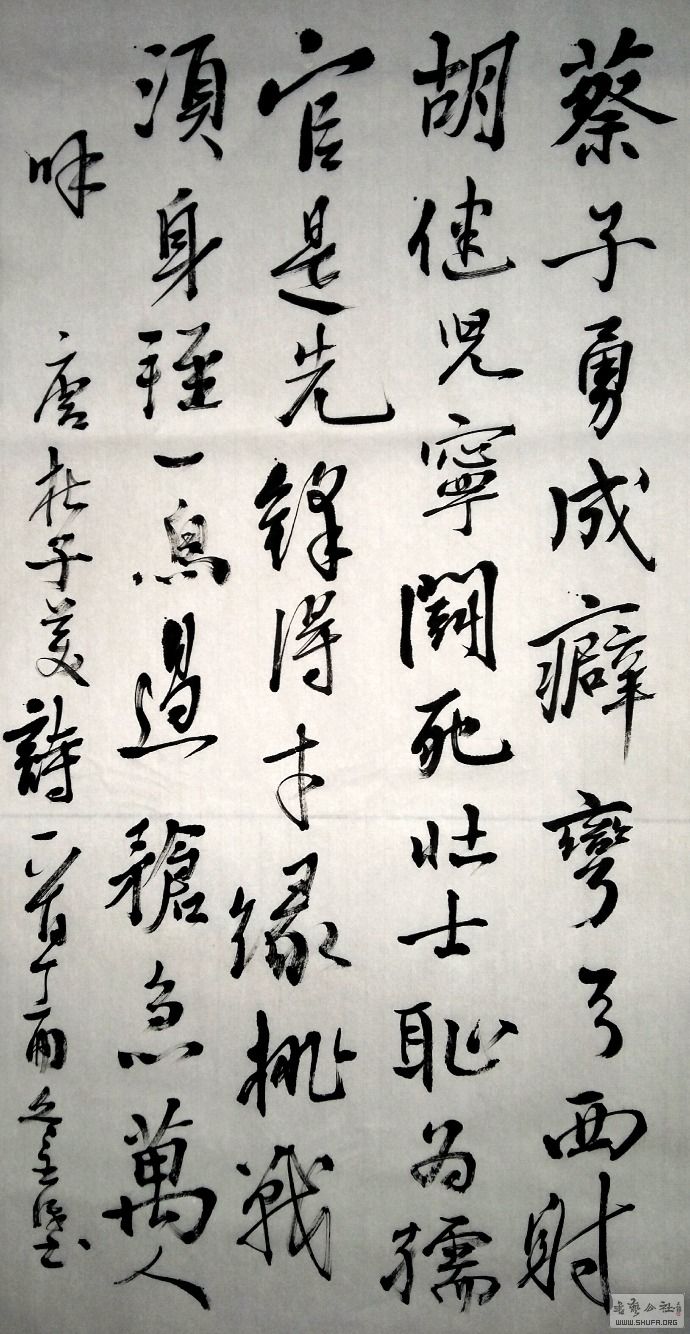 蔡子勇成癖彎弓西射
胡健兒寧鬭死壯士恥為孺
官是先鋒得才緣挑戰
須身輕一鳥過槍急萬人
呼 唐杜子美詩一首丁酉冬
書藝公社
WWW.SHUFA.ORG